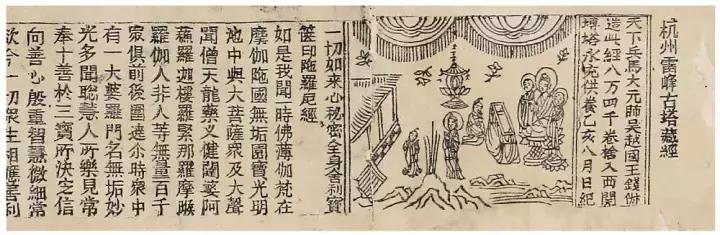 杭州雷峰古塔藏經
天下兵馬大元帥吳越國王錢俶
造此經八万四千卷捨入西關
塼塔永充供養乙亥八月日紀
一切如來心祕密全身舍利寶
篋印陁羅尼經
如是我聞一時佛薄伽梵在
摩伽陁國無垢園寶光明
池中與大菩薩衆及大聲
聞僧天龍藥叉健闥婆阿
蘇羅迦樓羅緊那羅摩睺
羅伽人非人等無量百千
衆俱前後圍遶尒時衆中
有一大婆羅門名無垢妙
光多聞聰慧人所樂見常
奉十善於三寶所決定信
向善心殷重智慧微細常
欲令一切衆生相應善利